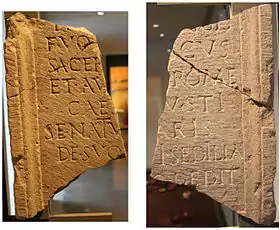 FVO
SACER
ET AV
CAE
SENATV
DE SVO
CVS
ROMAE
VSTI
ARIS
SEDILIA
DEDIT